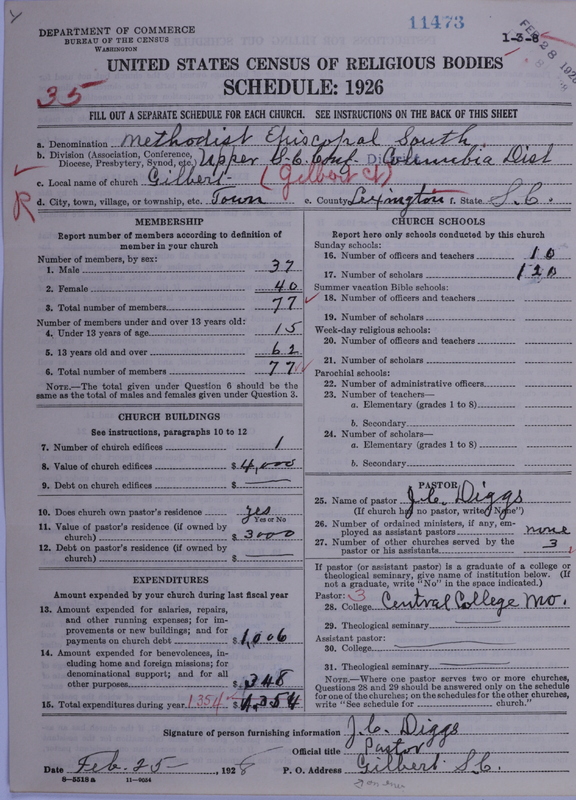 11473
DEPARTMENT OF COMMERCE
BUREAU OF THE CENSUS
WASHINGTON
1-3-8
FEB 28 1928
UNITED STATES CENSUS OF RELIGIOUS BODIES
35
SCHEDULE: 1926
FILL OUT A SEPARATE SCHEDULE FOR EACH CHURCH. SEE INSTRUCTIONS ON THE BACK OF THIS SHEET
a. Denomination Methodist Episcopal South
b. Division (Association, Conference, Diocese, Presbytery, Synod, etc.) Upper S.C. Conf. Columbia Dist
c. Local name of church Gilbert (Gilbert Ct)
R
d. City, town, village, or township, etc. Town e. County Lexington f. State S.C.
MEMBERSHIP
Report number of members according to definition of
member in your church
Number of members, by sex:
1. Male 37
2. Female 40
3. Total number of members 77
Number of members under and over 13 years old:
4. Under 13 years of age 15
5. 13 years old and over 62
6. Total number of members 77
NOTE.—The total given under Question 6 should be the
same as the total of males and females given under Question 3.
CHURCH BUILDINGS
See instructions, paragraphs 10 to 12
7. Number of church edifices 1
8. Value of church edifices $ 4,000
9. Debt on church edifices $
10. Does church own pastor's residence? yes
Yes or No
11. Value of pastor's residence (if owned by
church) $ 3000
12. Debt on pastor's residence (if owned by
church) $
EXPENDITURES
Amount expended by your church during last fiscal year
13. Amount expended for salaries, repairs,
and other running expenses; for im-
provements or new buildings; and for
payments on church debt $ 1,006
14. Amount expended for benevolences, in-
cluding home and foreign missions; for
denominational support; and for all
other purposes $ 348
15. Total expenditures during year 1354 $ 1,354
CHURCH SCHOOLS
Report here only schools conducted by this church
Sunday schools:
16. Number of officers and teachers 10
17. Number of scholars 120
Summer vacation Bible schools:
18. Number of officers and teachers
19. Number of scholars
Week-day religious schools:
20. Number of officers and teachers
21. Number of scholars
Parochial schools:
22. Number of administrative officers
23. Number of teachers—
a. Elementary (grades 1 to 8)
b. Secondary
24. Number of scholars—
a. Elementary (grades 1 to 8)
b. Secondary
PASTOR
25. Name of pastor J.C. Diggs
(If church has no pastor, write "None")
26. Number of ordained ministers, if any, em-
ployed as assistant pastors none
27. Number of other churches served by the
pastor or his assistants 3
If pastor (or assistant pastor) is a graduate of a college or
theological seminary, give name of institution below. (If
not a graduate, write "No" in the space indicated.)
Pastor: 3
28. College Central College Mo.
29. Theological seminary
Assistant pastor:
30. College
31. Theological seminary
NOTE.—Where one pastor serves two or more churches,
Questions 28 and 29 should be answered only on the schedule
for one of the churches; on the schedules for the other churches,
write "See schedule for church."
Signature of person furnishing information J.C. Diggs
Official title Pastor
Date Feb. 25 1928 P. O. Address Gilbert S.C.
8—5518 a 11—9034